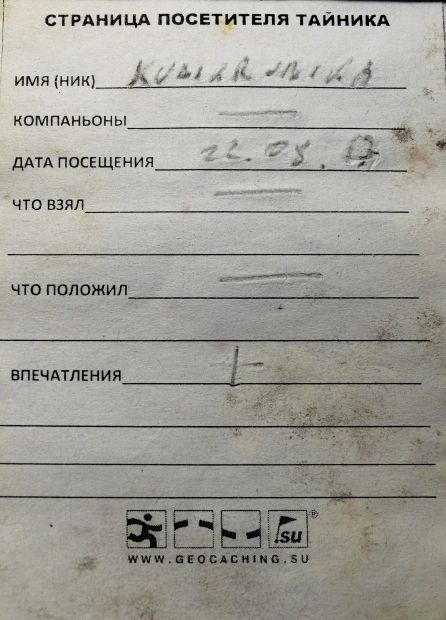 СТРАНИЦА ПОСЕТИТЕЛЯ ТАЙНИКА
ИМЯ (НИК)
КОМПАНЬОНЫ —
ДАТА ПОСЕЩЕНИЯ 22.08.
ЧТО ВЗЯЛ —
ЧТО ПОЛОЖИЛ —
ВПЕЧАТЛЕНИЯ +
.su ®
WWW.GEOCACHING.SU